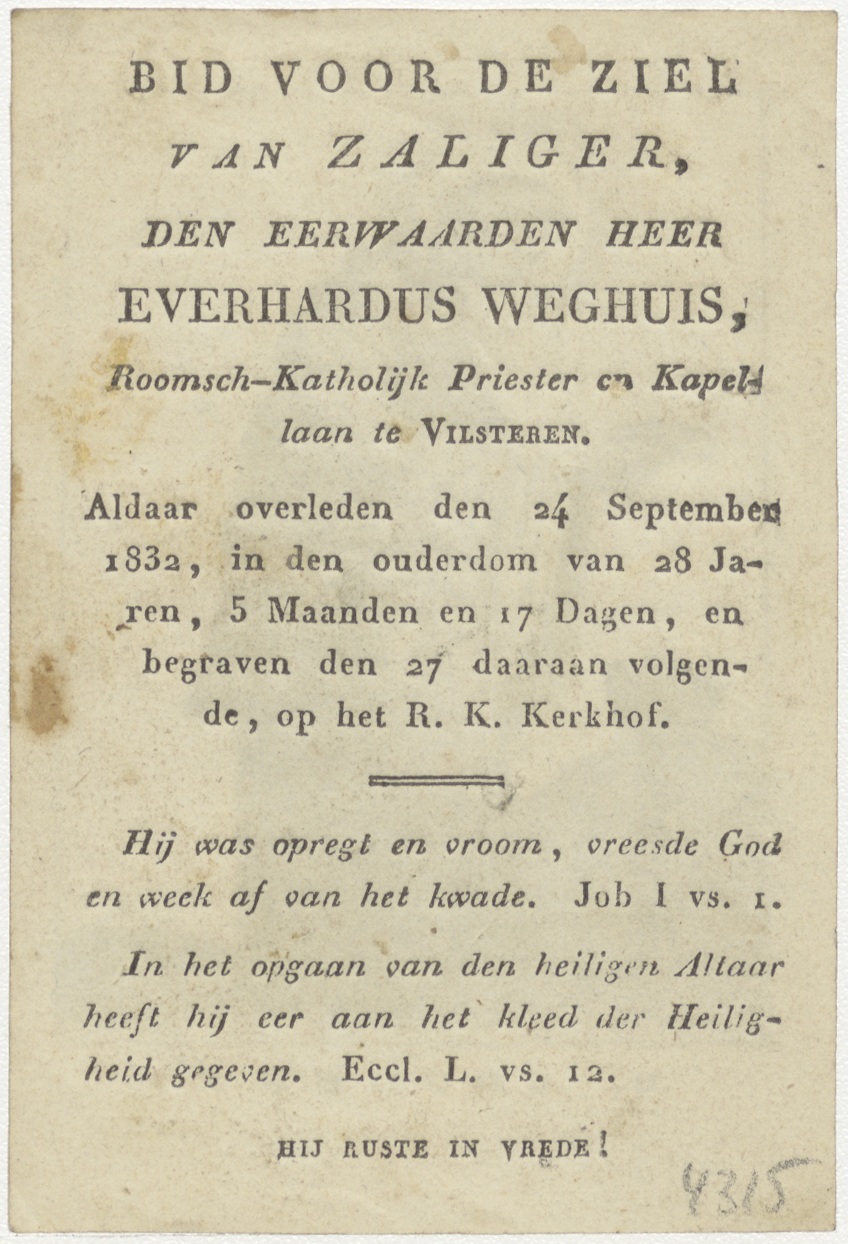 BID VOOR DE ZIEL
VAN ZALIGER,
DEN EERWAARDEN HEER
EVERHARDUS WEGHUIS,
Roomsch-Katholijk Priester en Kapel-
laan te VILSTEREN.
Aldaar overleden den 24 September
1832, in den ouderdom van 28 Ja-
ren, 5 Maanden en 17 Dagen, en
begraven den 27 daaraan volgen-
de, op het R. K. Kerkhof.
Hij was opregt en vroom, vreesde God
en week af van het kwade. Job I vs. 1.
In het opgaan van den heiligen Altaar
heeft hij eer aan het kleed der Heilig-
heid gegeven. Eccl. L. vs. 12.
HIJ RUSTE IN VREDE!
4315